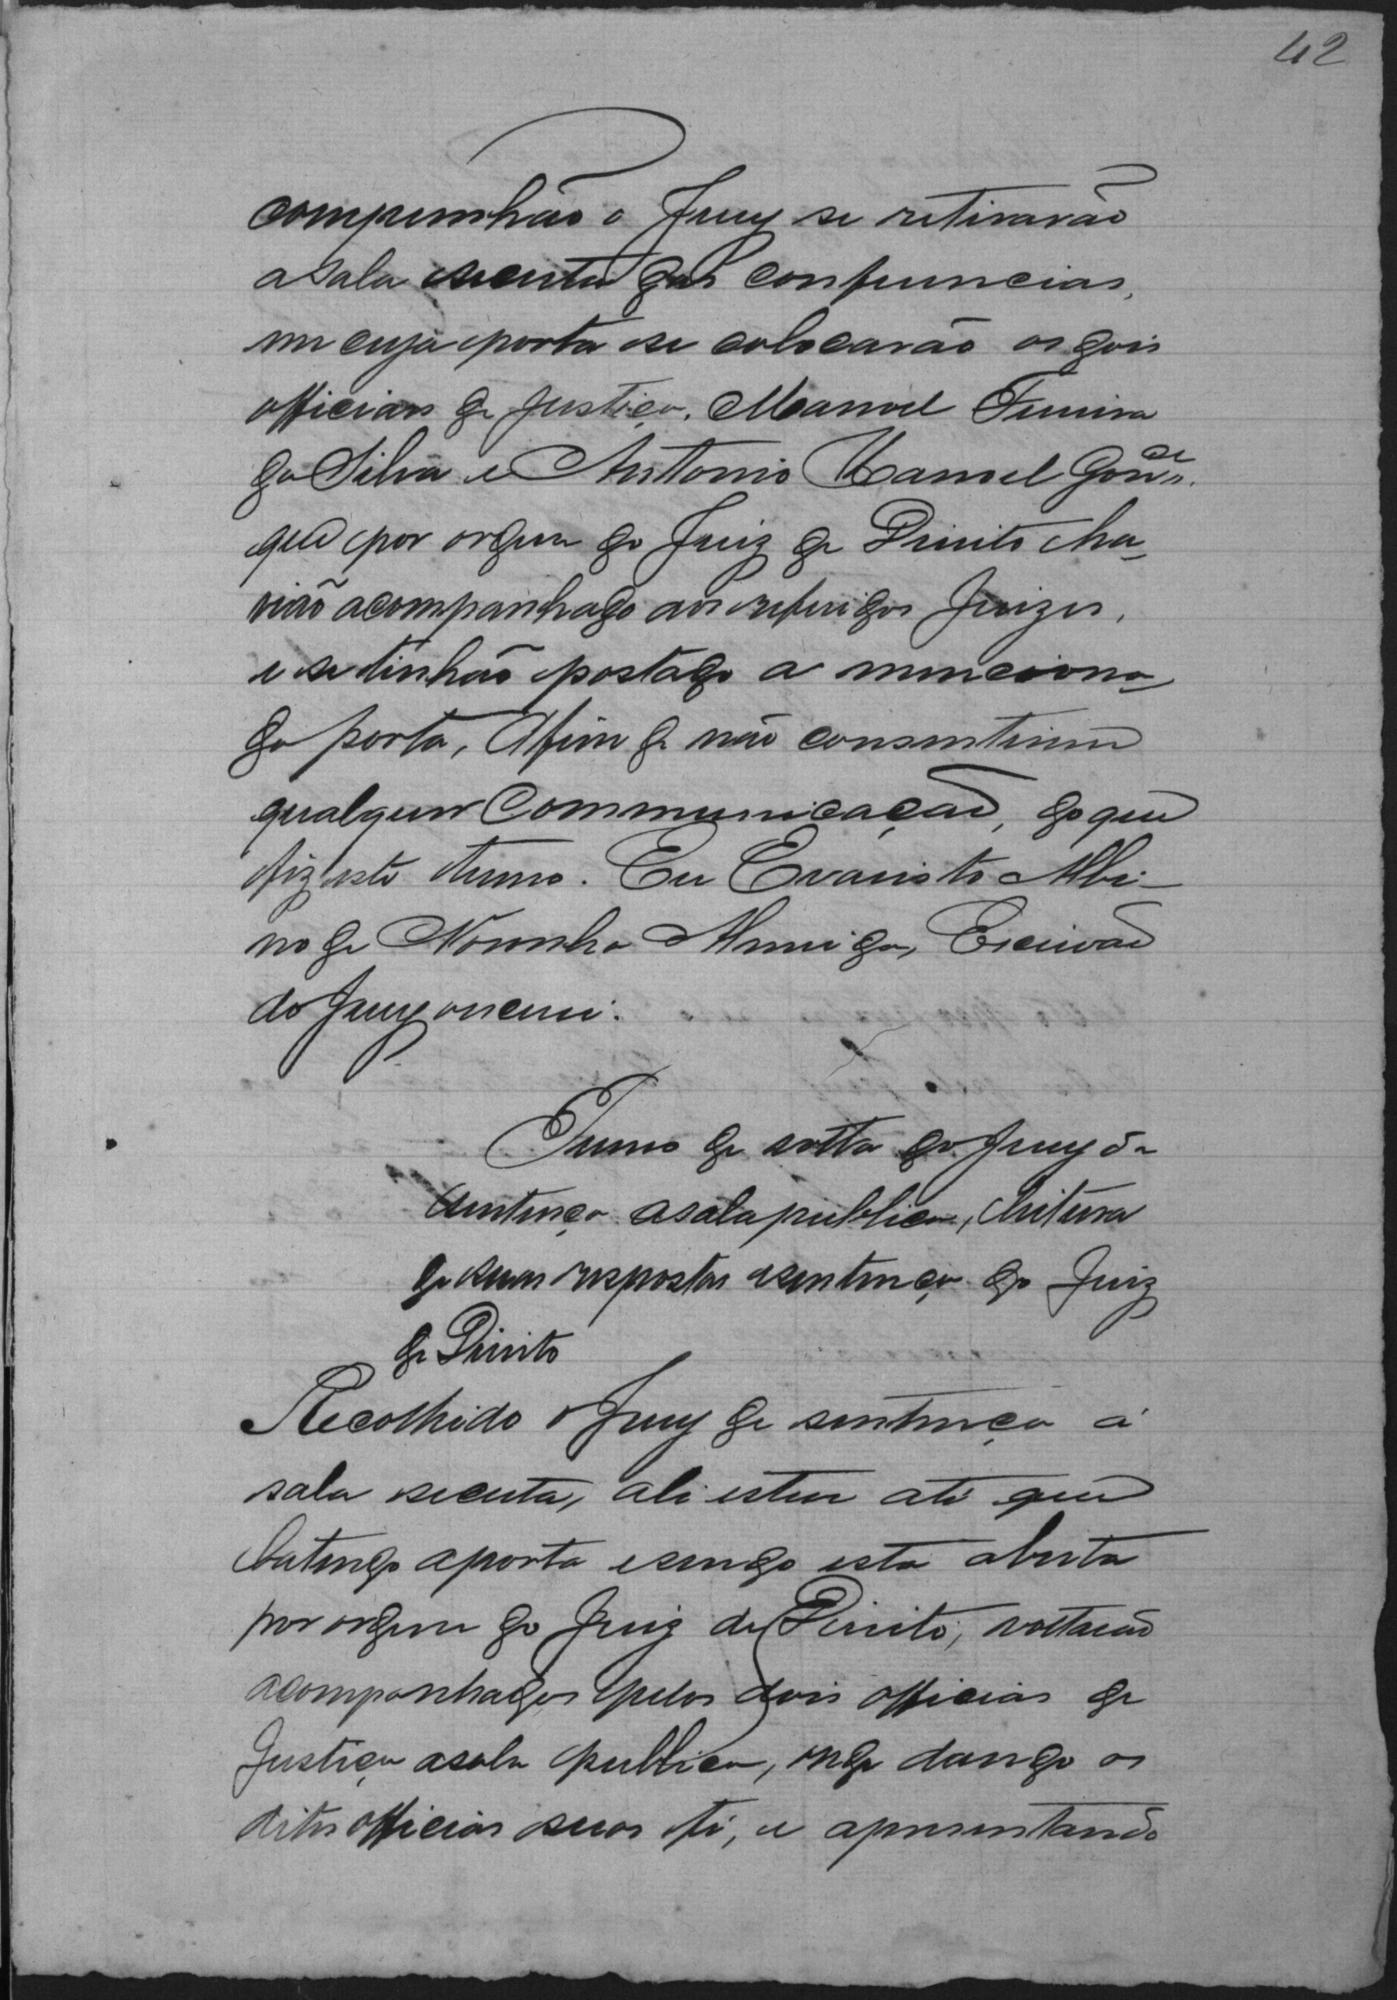 42
compunhão o Jury se retirarão
a sala secreta das conferencias,
em cuja porta se colocarão os dois
officiaes de Justiça, Manoel Ferreira
da Silva e Antonio Manoel Gonçes.
que por ordem do Juiz de Direito ha-
vião acompanhado aos referidos Juizes,
e se tinhão postado a menciona-
da porta, Afim de não consentirem
qualquer communicação, do que
fiz este termo. Eu Evaristo Albi-
no de Noronha Almeida, Escrivão
do Jury escrevi.
Termo de volta do Jury de
sentença a sala publica, leitura
de suas respostas e sentença do Juiz
de Direito
Recolhido o Jury de sentença á
sala secreta, ali esteve até que
batendo a porta e sendo esta aberta
por ordem do Juiz de Direito, voltarão
acompanhados pelos dois officiaes de
Justiça a sala publica, onde dando os
ditos officiaes suas fé, e apresentando